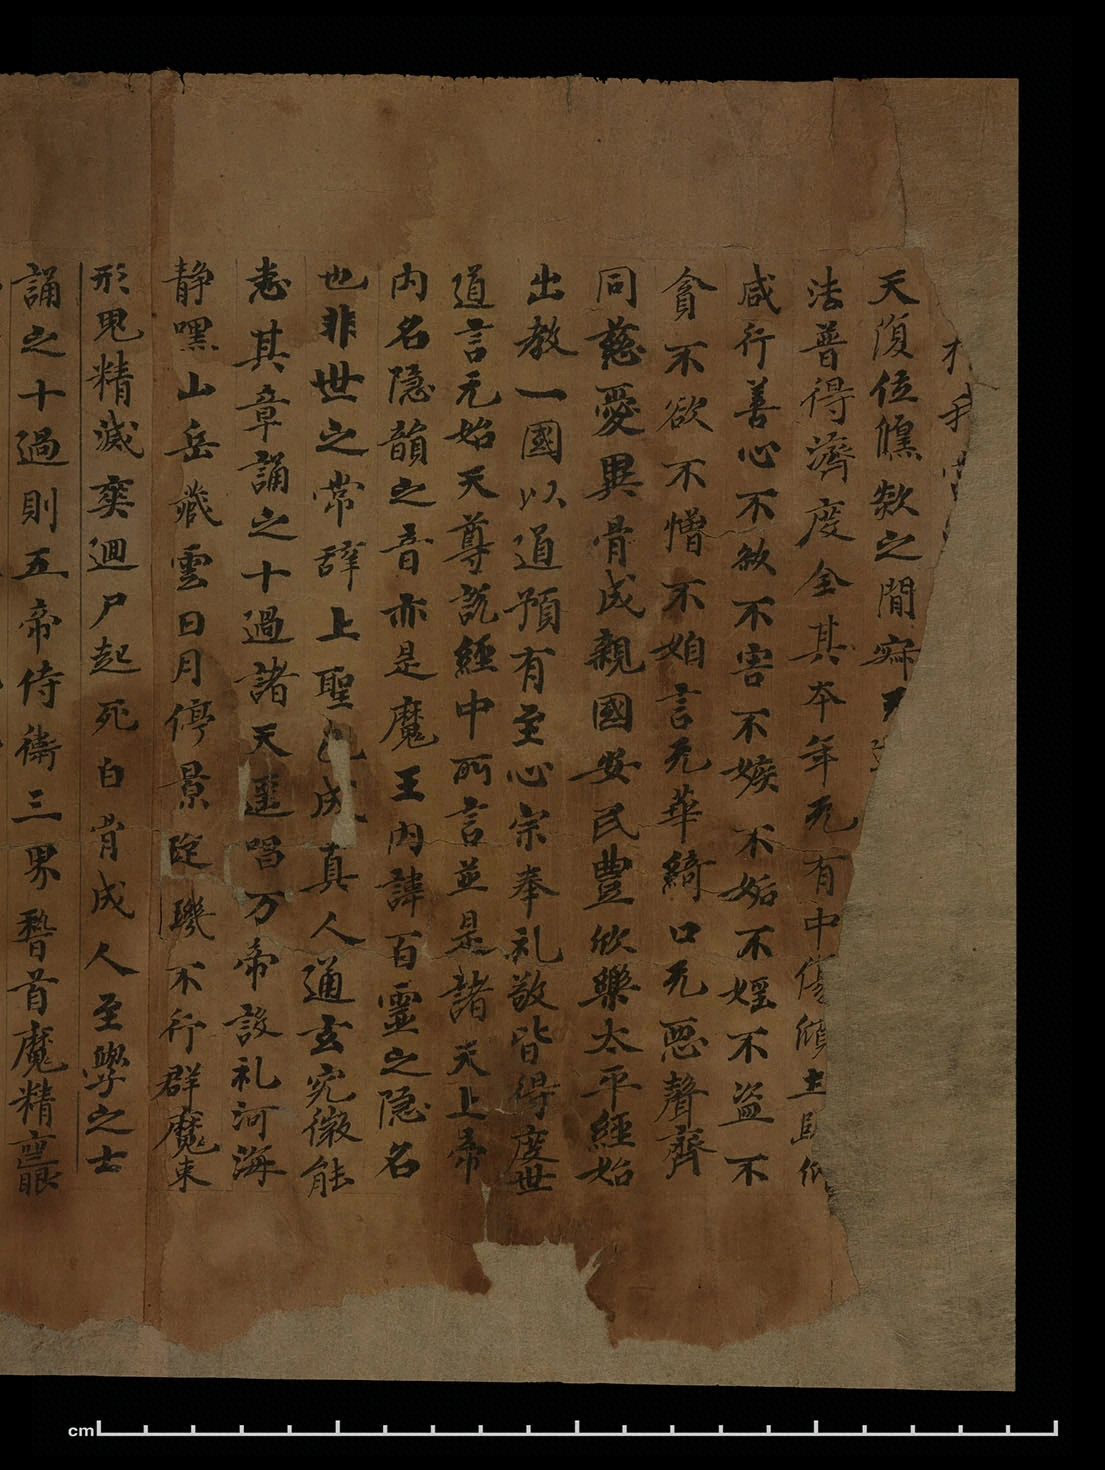 天復位倏欻之閒寂无
法普得濟度全其夲年无有中傷傾土
咸行善心不欲不害不嫉不妬不婬不盜不
貪不欲不憎不姐言无華綺口无惡聲齊
同慈愛異骨成親國安民豊欣樂太平經始
出教一國以道預有至心宗奉礼敬皆得度世
道言元始天尊説經中所言並是諸天上帝
内名隐韻之音亦是魔王内諱百靈之隐名
也非世之常辞上聖已成真人通玄究微能
悉其章誦之十過諸天遥唱万帝設礼河海
静嘿山岳藏雲日月停景琁璣不行群魔束
形鬼精滅爽廻尸起死白骨成人至學之士
誦之十過則五帝侍衛三界稽首魔精喪眼